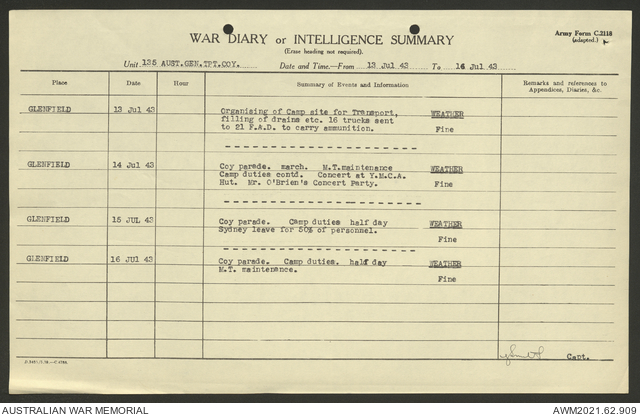 WAR DIARY or INTELLIGENCE SUMMARY
(Erase heading not required).
Army Form C.2118
(adapted.)
Unit 135 AUST.GEN.TPT.COY. Date and Time.—From 13 Jul 43 To 16 Jul 43
Place Date Hour Summary of Events and Information Remarks and references to Appendices, Diaries, &c.
GLENFIELD 13 Jul 43 Organizing of Camp site for Transport, WEATHER
filling of drains etc. 16 trucks sent
to 21 F.A.D. to carry ammunition. Fine
GLENFIELD 14 Jul 43 Coy parade. march. M.T.maintenance WEATHER
Camp duties contd. Concert at Y.M.C.A.
Hut. Mr. O'Brien's Concert Party. Fine
GLENFIELD 15 JUL 43 Coy parade. Camp duties half day WEATHER
Sydney leave for 50% of personnel.
Fine
GLENFIELD 16 JUl 43 Coy parade. Camp duties. half day WEATHER
M.T. maintenance.
Fine
Capt.
AUSTRALIAN WAR MEMORIAL AWM2021.62.909